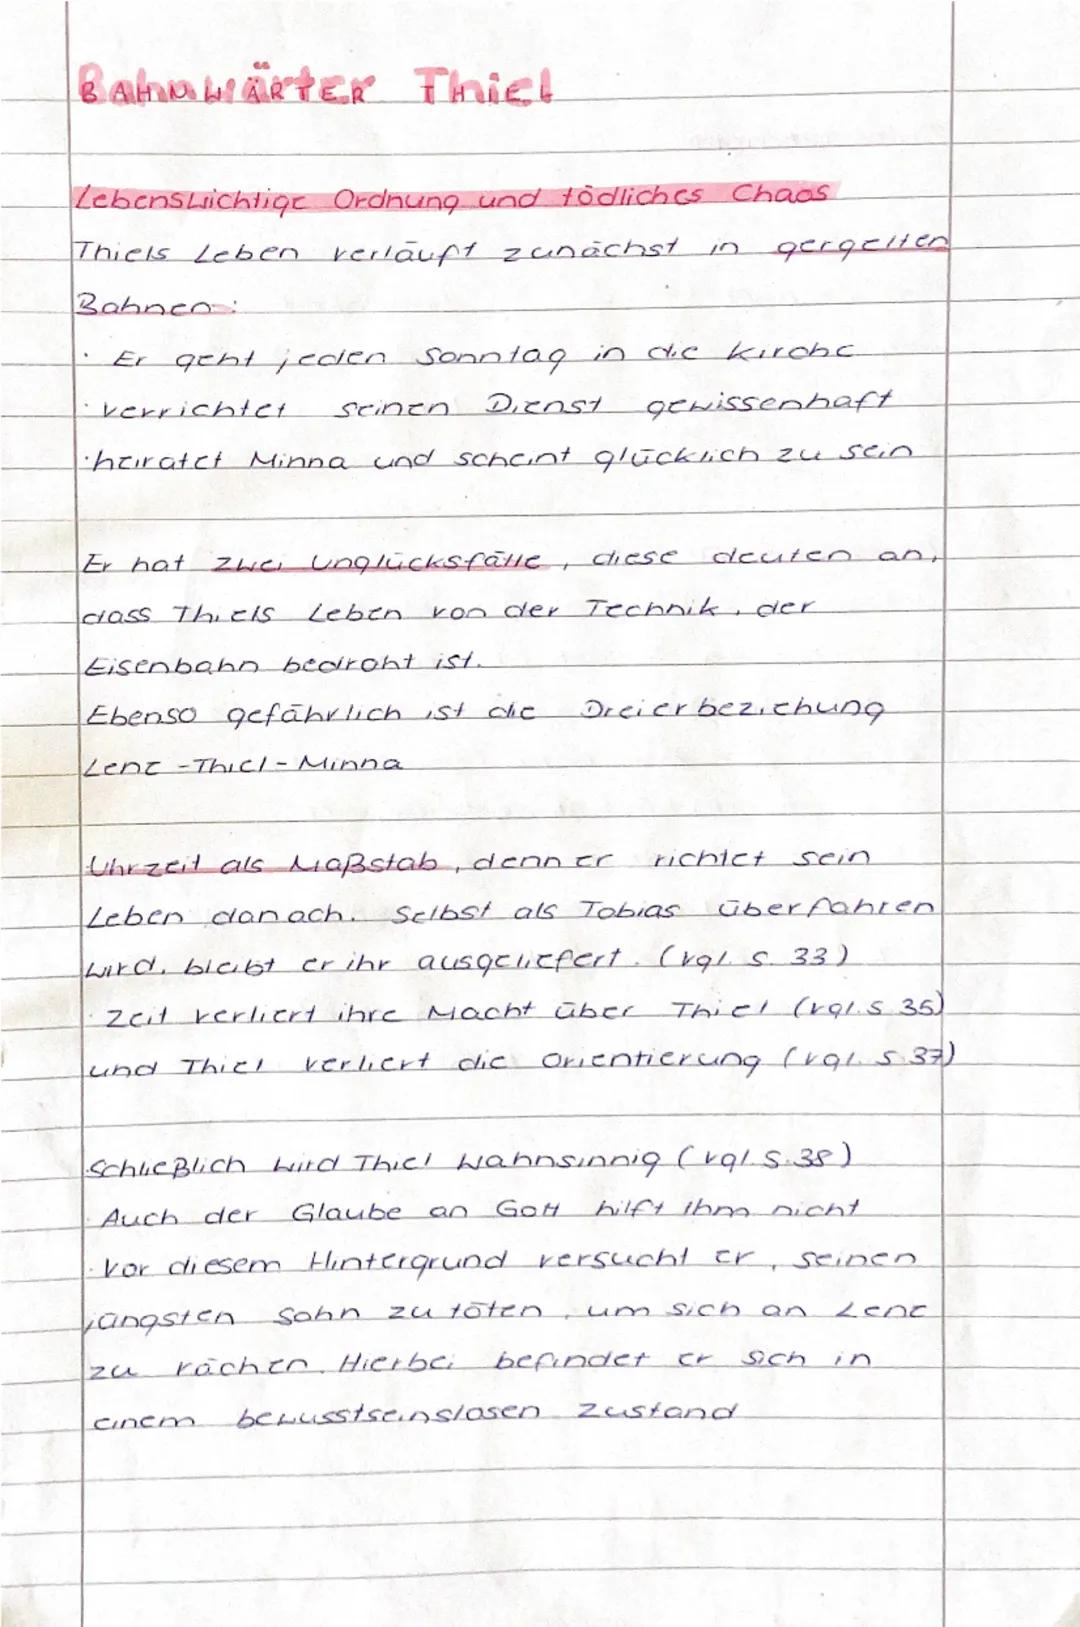 Bahnwärter Thiel
BAHNWÄRTER THIEL
Lebenswichtige Ordnung und tödliches Chaos
Thiels Leben verläuft zunächst in gergelten
Bahnen:
· Er geht jeden Sonntag in die Kirche
· verrichtet seinen Dienst gewissenhaft
· heiratet Minna und scheint glücklich zu sein
Er hat zwei Unglücksfälle, diese deuten an,
dass Thiels Leben von der Technik, der
Eisenbahn bedroht ist.
Ebenso gefährlich ist die Dreierbeziehung
Lene - Thiel - Minna
Uhrzeit als Maßstab, denn er richtet sein
Leben danach. Selbst als Tobias überfahren
wird, bleibt er ihr ausgeliefert. (vgl. S. 33)
· Zeit verliert ihre Macht über Thiel (vgl. S. 35)
und Thiel verliert die Orientierung (vgl. S. 37)
Schließlich wird Thiel wahnsinnig (vgl. S. 38)
· Auch der Glaube an Gott hilft ihm nicht
· Vor diesem Hintergrund versucht er, seinen
jüngsten Sohn zu töten, um sich an Lene
zu rächen. Hierbei befindet er sich in
einem bewusstseinslosen Zustand